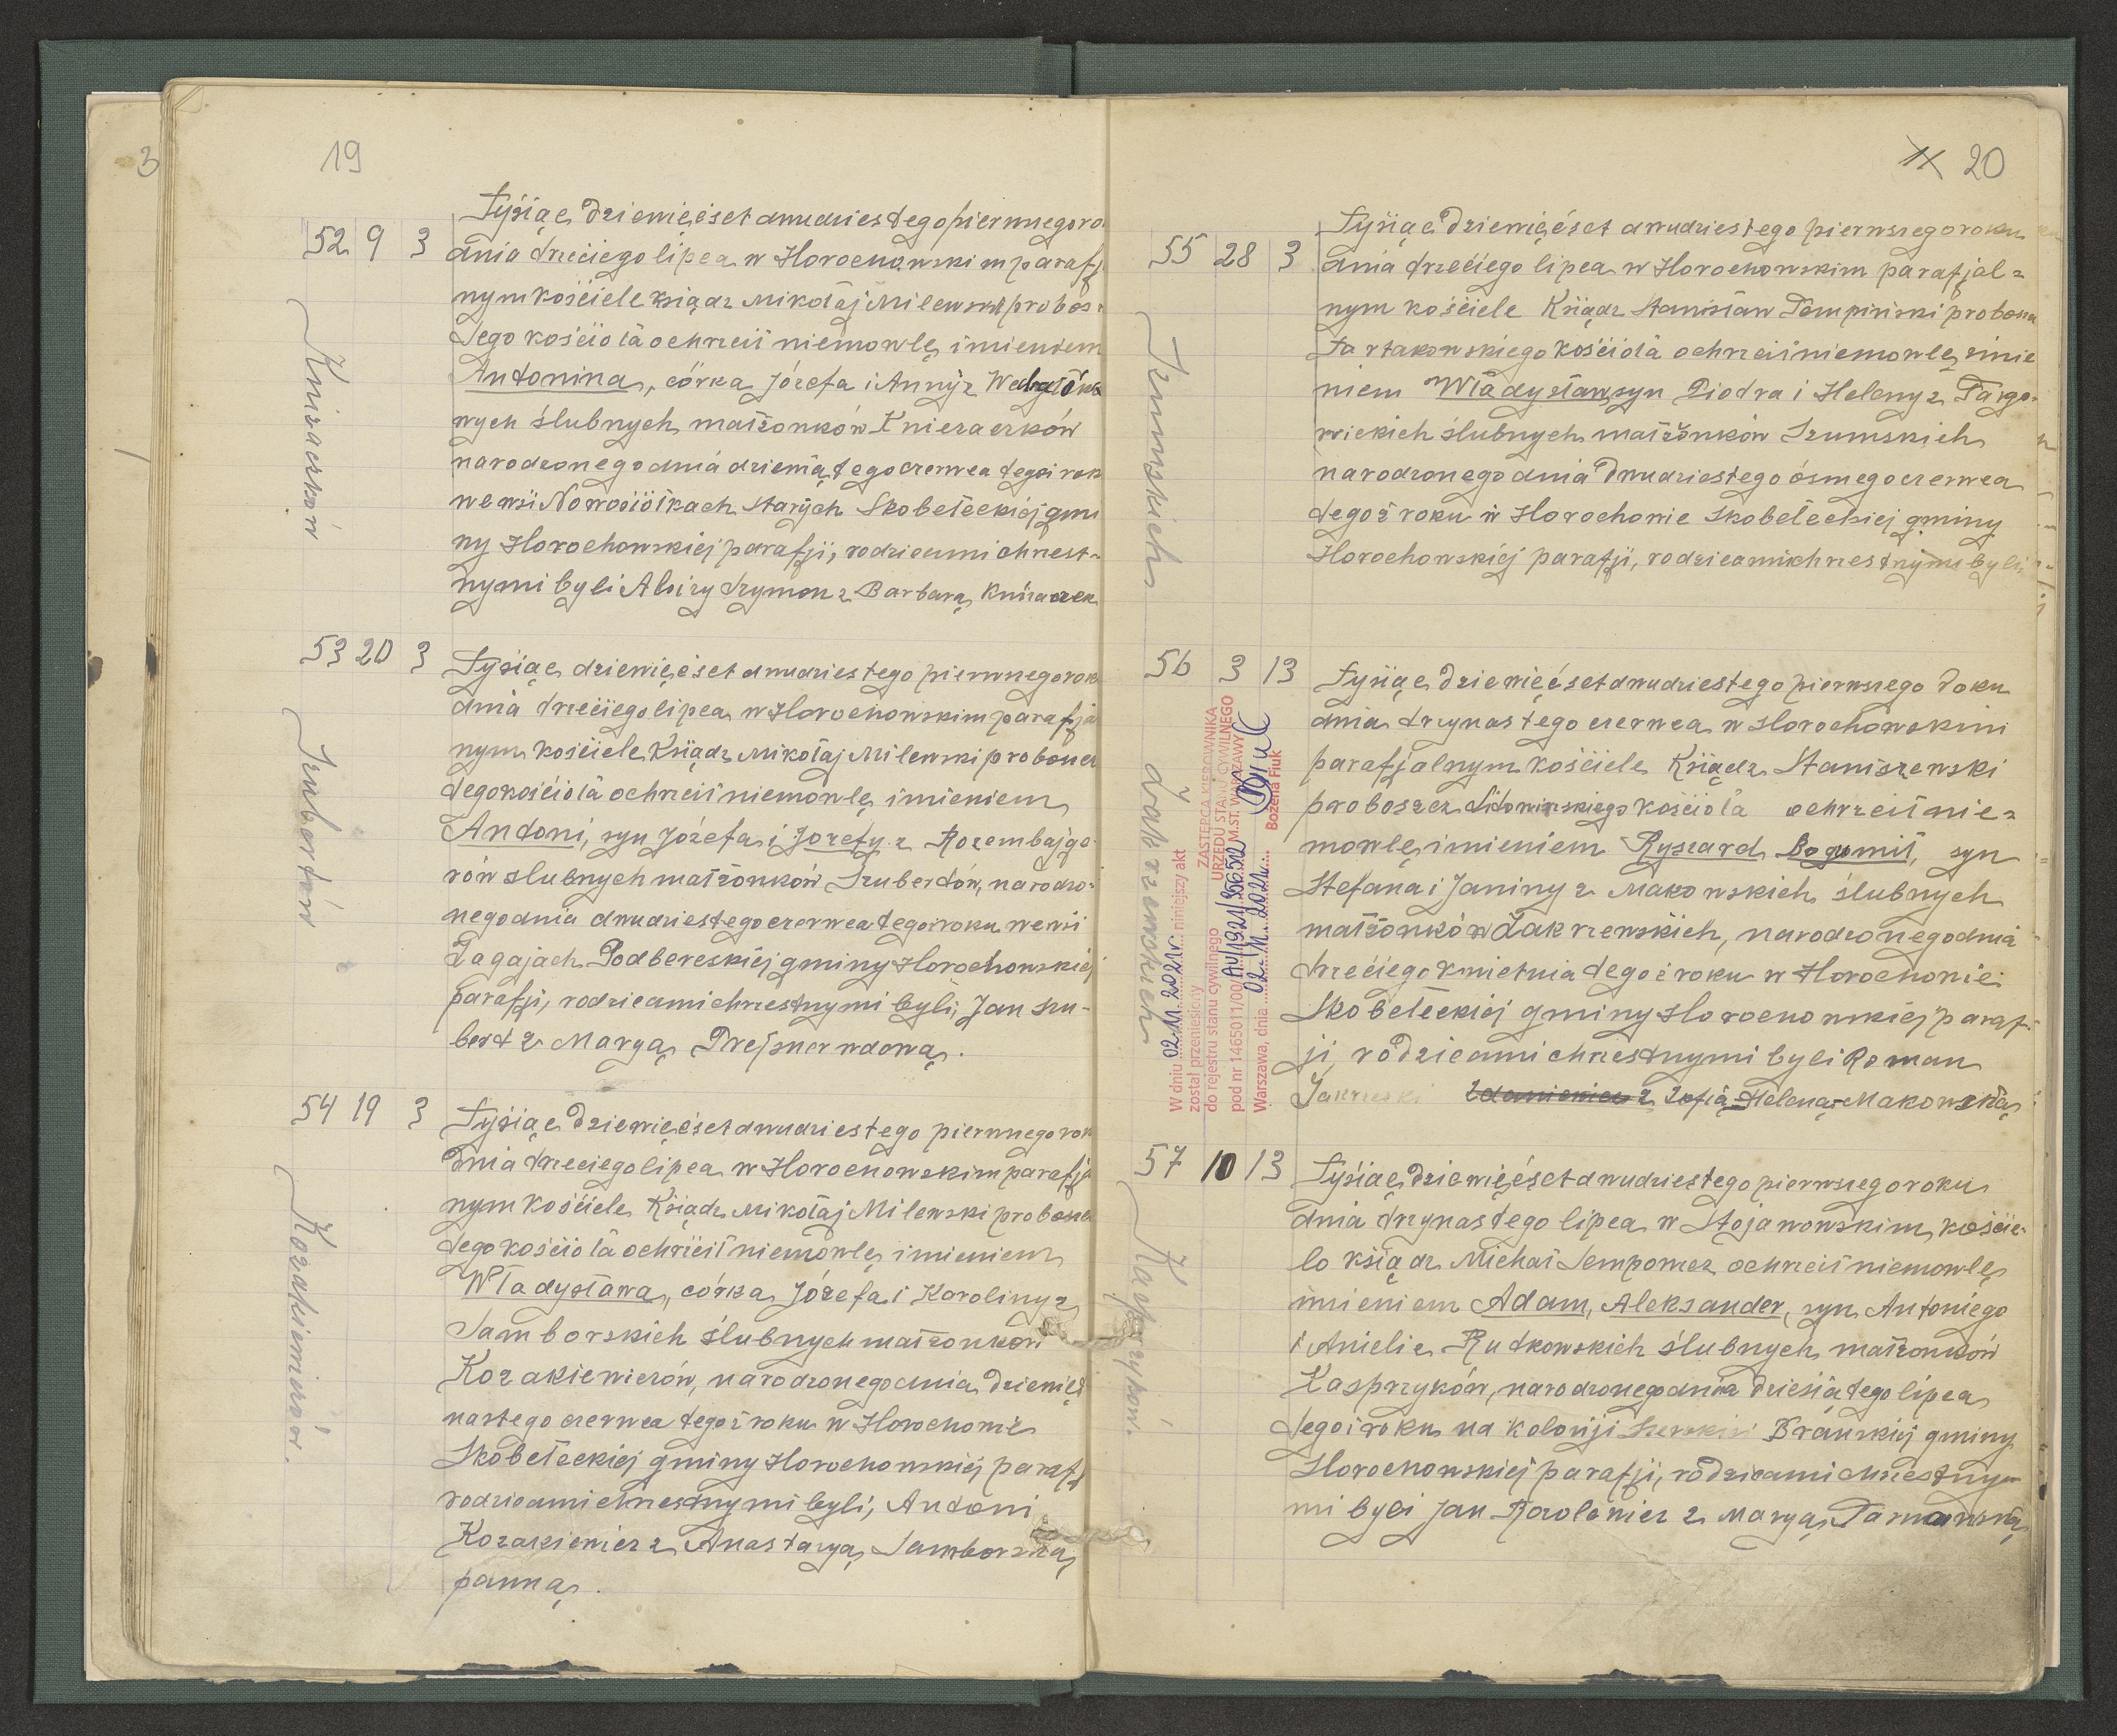 3
19
52 9 3
Knizaczków
Tysiąc dziewięćset dwudziestego pierwszego ro
dnia trzeciego lipca w Horochowskim parafj
nym kościele ksiądz Mikołaj Milewski probos
tego kościoła ochrzcił niemowlę imieniem
Antonina, córka Józefa i Anny z
wych ślubnych małżonków Kniezaczków
narodzonego dnia dziewiątego czerwca tegoż rok
we wsi Nowosiółkach Starych Skobełeckiej gmi
ny Horochowskiej parafji, rodzicami chrzest-
nymi byli Alojzy Szymon z Barbarą Kniżaczek
53 20 3
Szubertów
Tysiąc dziewięćset dwudziestego pierwszego rok
dnia trzeciego lipca w Horochowskim parafja
nym kościele Ksiądz Mikołaj Milewski proboszcz
tego kościoła ochrzcił niemowlę imieniem
Antoni, syn Józefa i Józefy z Rozembajge
rów ślubnych małżonków Szubertów, narodzo-
nego dnia dwudziestego czerwca tegoż roku we wsi
Zagajach Podbereskiej gminy Horochowskiej
parafji, rodzicami chrzestnymi byli, Jan Szu-
bert z Maryą Prejzner wdową.
54 19 3
Kozakiewiczów.
Tysiąc dziewięćset dwudziestego pierwszego rok
dnia trzeciego lipca w Horochowskim parafja
nym kościele Ksiądz Mikołaj Milewski probosz
tego kościoła ochrzcił niemowlę imieniem
Władysława, córka Józefa i Karoliny z
Samborskich ślubnych małżonków
Kozakiewiczów, narodzonego dnia dziewięt
nastego czerwca tegoż roku w Horochowie
Skobełeckiej gminy Horochowskiej paraf
rodzicami chrzestnymi byli, Antoni
Kozakiewicz z Anastazyą Samborską
panną.
20
55 28 3
Szumskich
Tysiąc dziewięćset dwudziestego pierwszego roku
dnia trzeciego lipca w Horochowskim parafjal-
nym kościele Ksiądz Stanisław
Tartakowskiego kościoła ochrzcił niemowlę imie
niem Władysław, syn Piotra i Heleny z Targo-
wickich ślubnych małżonków Szumskich
narodzonego dnia dwudziestego ósmego czerwca
tegoż roku w Horochowie Skobełeckiej gminy
Horochowskiej parafji, rodzicami chrzestnymi byli
56 3 13
Zakrzewskich
W dniu 02.11.2021r. niniejszy akt
został przeniesiony
do rejestru stanu cywilnego
pod nr 1465011/00/AU/1921/956512
Warszawa, dnia 02.11.2021r.
ZASTĘPCA KIEROWNIKA
URZĘDU STANU CYWILNEGO
M.ST. WARSZAWY
Bożena Fiuk
Tysiąc dziewięćset dwudziestego pierwszego roku
dnia trzynastego czerwca w Horochowskim
parafjalnym kościele Ksiądz Staniszewski
proboszcz kościoła ochrzcił nie-
mowlę imieniem Ryszard Bogumił, syn
Stefana i Janiny z Makowskich ślubnych
małżonków Zakrzewskich, narodzonego dnia
trzeciego kwietnia tegoż roku w Horochowie
Skobełeckiej gminy Horochowskiej paraf-
ji, rodzicami chrzestnymi byli Roman
Zofią Heleną Makowską
57 10 13
Kasprzyków.
Tysiąc dziewięćset dwudziestego pierwszego roku
dnia trzynastego lipca w Stojanowskim koście-
le ksiądz Michał ochrzcił niemowlę
imieniem Adam, Aleksander, syn Antoniego
i Anieli z Rutkowskich ślubnych małżonków
Kasprzyków, narodzonego dnia dziesiątego lipca
tegoż roku na kolonji Brańskiej gminy
Horochowskiej parafji, rodzicami chrzestny-
mi byli Jan z Maryą Tarnawską